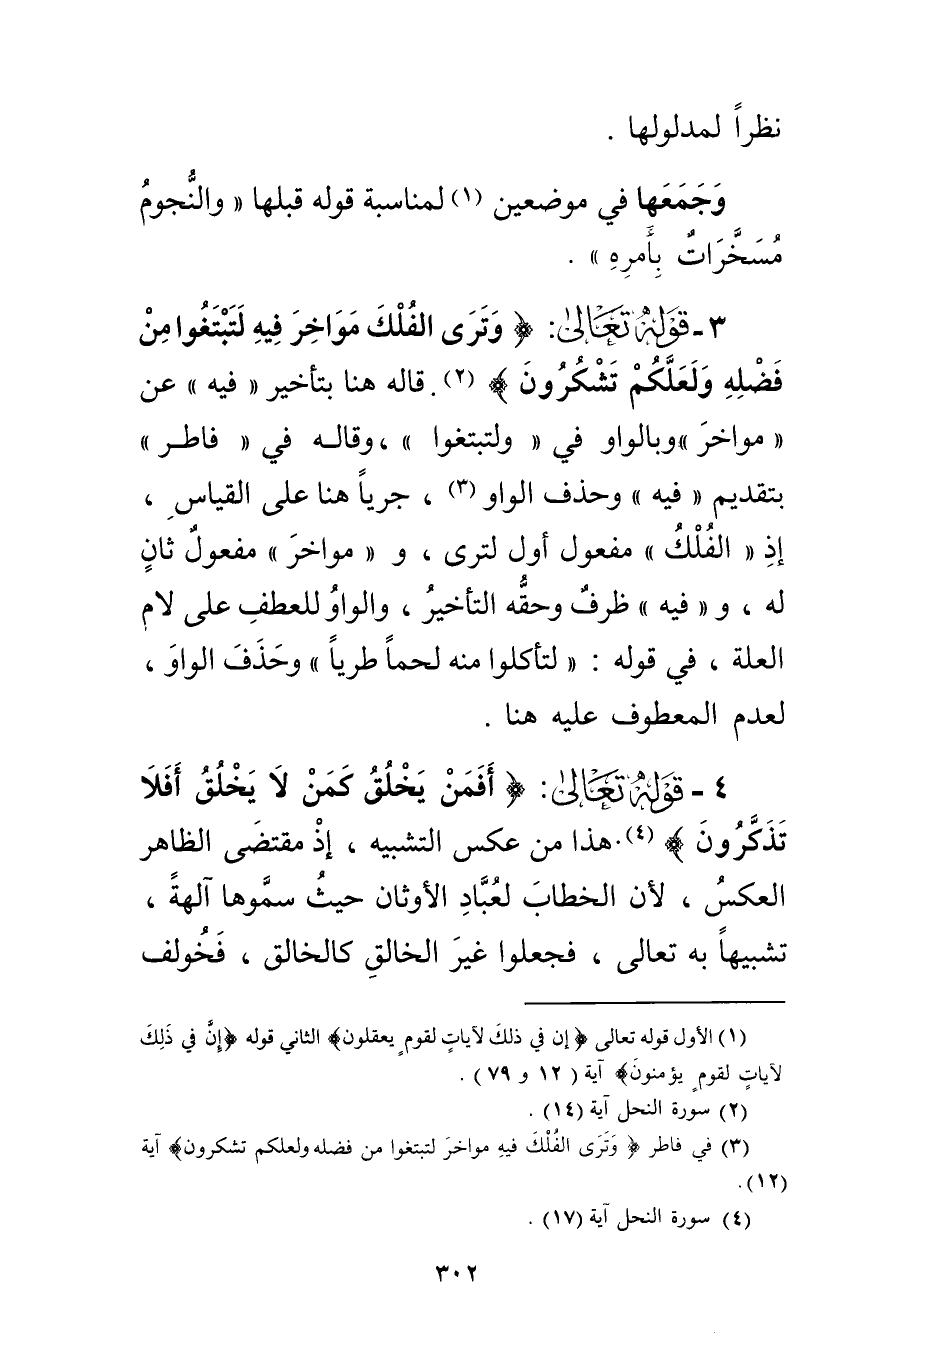 نظراً لمدلولها .
وَجَمَعَها في موضعين (١) لمناسبة قوله قبلها « والنُّجومُ
مُسَخَّرَاتٌ بِأَمرِهِ » .
٣ - قَوْلُهُ تَعَالىٰ : ﴿ وَتَرَى الفُلْكَ مَوَاخِرَ فِيهِ لَتَبْتَغُوا مِنْ
فَضْلِهِ وَلَعَلَّكُمْ تَشْكُرُونَ ﴾ (٢) . قاله هنا بتأخير « فيه » عن
« مواخرَ » وبالواو في « ولتبتغوا » ، وقاله في « فاطر »
بتقديم « فيه » وحذف الواو (٣) ، جرياً هنا على القياسِ ،
إذِ « الفُلْكُ » مفعول أول لترى ، و « مواخرَ » مفعولٌ ثانٍ
له ، و « فيه » ظرفٌ وحقُّه التأخيرُ ، والواوُ للعطفِ على لام
العلة ، في قوله : « لتأكلوا منه لحماً طرياً » وحَذَفَ الواوَ ،
لعدم المعطوف عليه هنا .
٤ - قَوْلُهُ تَعَالىٰ : ﴿ أَفَمَنْ يَخْلُقُ كَمَنْ لَا يَخْلُقُ أَفَلَا
تَذَكَّرُونَ ﴾ (٤) . هذا من عكس التشبيه ، إذْ مقتضَى الظاهر
العكسُ ، لأن الخطابَ لعُبَّادِ الأوثان حيثُ سمَّوها آلهةً ،
تشبيهاً به تعالى ، فجعلوا غيرَ الخالقِ كالخالق ، فَخُولف
(١) الأول قوله تعالى ﴿ إن في ذلكَ لآياتٍ لقومٍ يعقلون﴾ الثاني قوله ﴿إِنَّ في ذَلِكَ
لآياتٍ لقومٍ يؤمنونَ﴾ آية ( ١٢ و ٧٩ ) .
(٢) سورة النحل آية (١٤) .
(٣) في فاطر ﴿ وَتَرَى الفُلْكَ فيهِ مواخرَ لتبتغوا من فضله ولعلكم تشكرون﴾ آية
(١٢) .
(٤) سورة النحل آية (١٧) .
٣٠٢